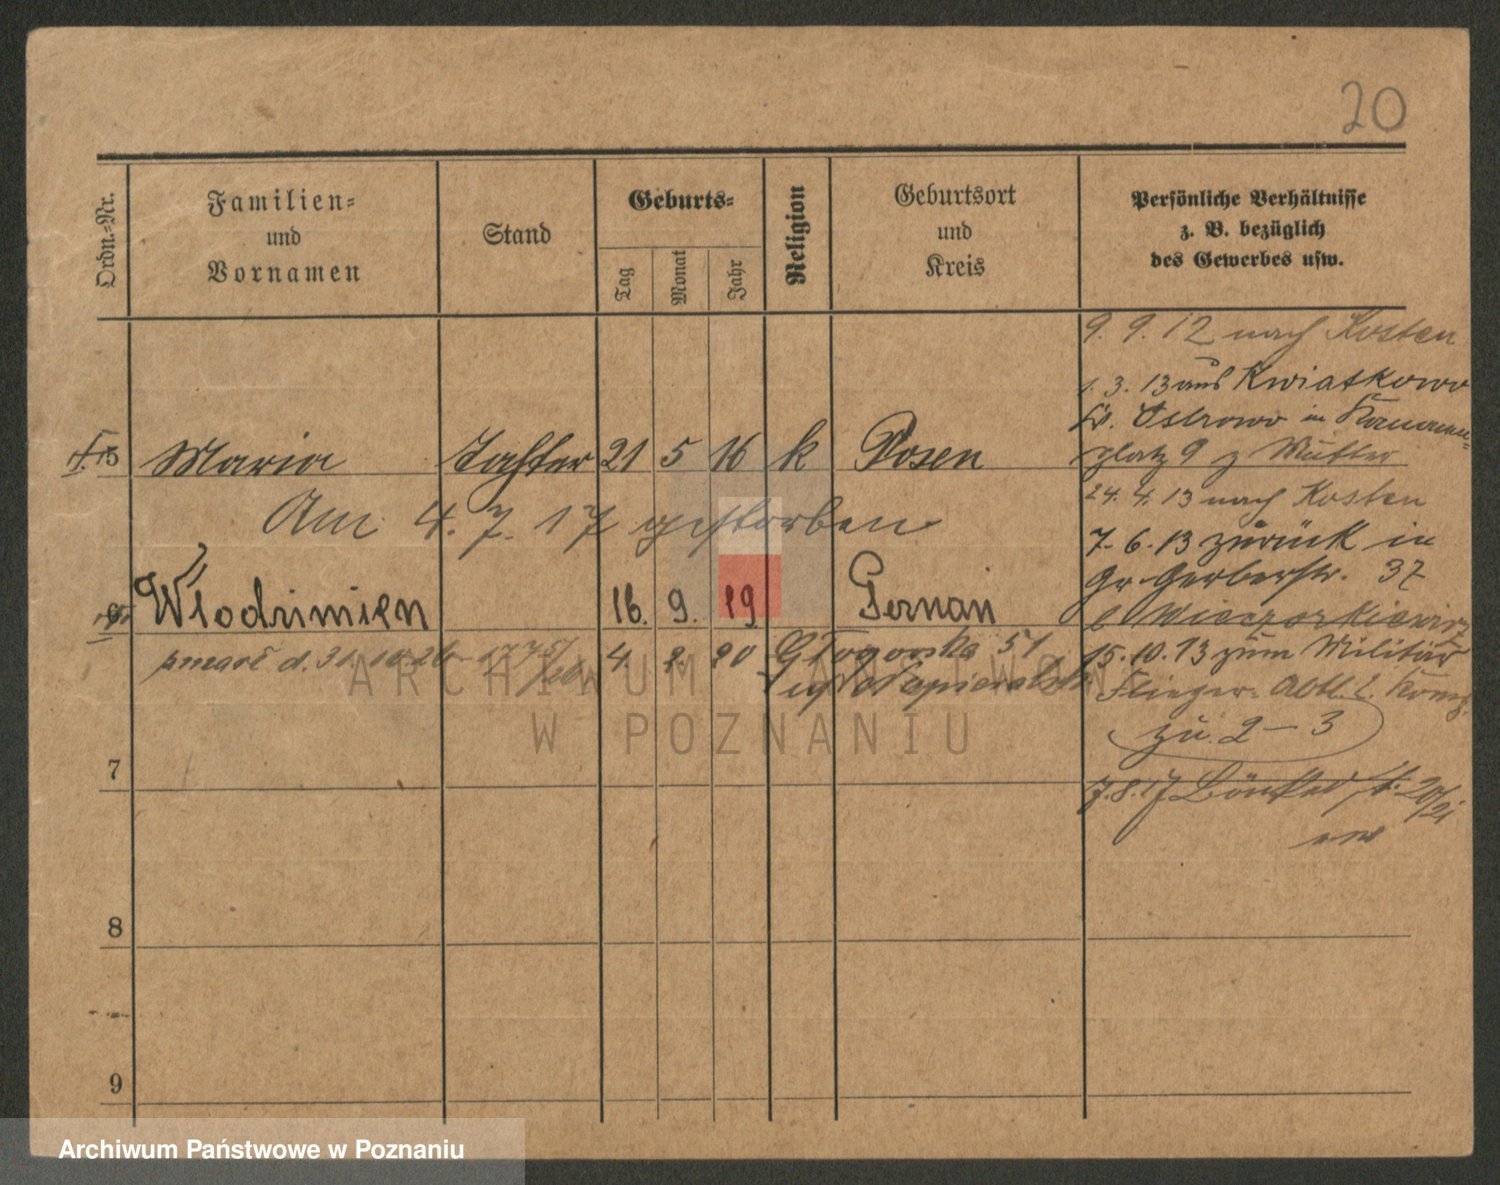 20
Ordn.-Nr.
Familien-
und
Vornamen
Stand
Geburts-
Tag
Monat
Jahr
Religion
Geburtsort
und
Kreis
Persönliche Verhältnisse
z. B. bezüglich
des Gewerbes usw.
9. 9. 12 nach Kosten
1. 3. 13 aus Kwiatkowo
Kr. Ostrowo in
platz 9 z Mutter
5 Maria Tochter 21 5 16 k Posen
24. 4. 13 nach Kosten
Am 4. 7. 17 gestorben
7. 6. 13 zurück in
Gr. Gerberstr. 37
6 Włodzimierz 16. 9. 19. Poznań
zmarł d. 31. 10. 26 4. 2. 20 Głogowska 51
15. 10. 13 zum Militär
Flieger-Abtl. 2.
zu 2 – 3
7
7. 8. 17 20/21
8
9
ARCHIWUM PAŃSTWOWE
W POZNANIU
Archiwum Państwowe w Poznaniu